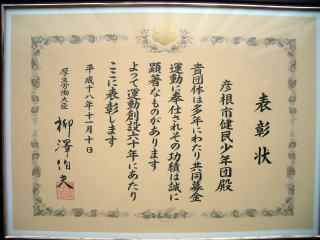 表彰状
彦根市健民少年団殿
貴団体は多年にわたり共同募金
運動に奉仕されその功績は誠に
顕著なものがあります
よって運動創設六十年にあたり
ここに表彰します
平成十八年十一月十日
厚生労働大臣
柳澤伯夫